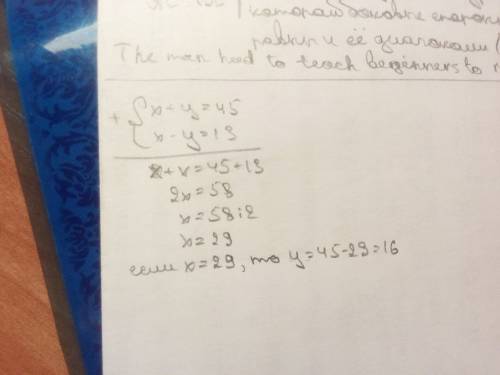 которая боковые
равны и её диагоналями
The man had to teach beginners to
+ { x + y = 45
x - y = 13
x + x = 45 + 13
2x = 58
x = 58 : 2
x = 29
если x = 29, то y = 45 - 29 = 16